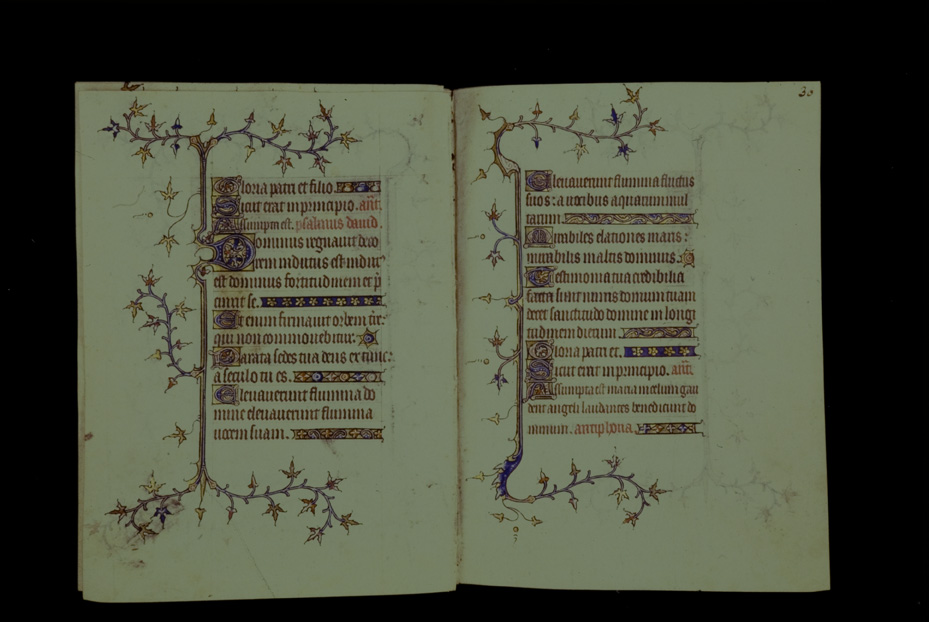 Gloria patri et filio.
Sicut erat in principio. añt.
Assumpta est. psalmus david.
Dominus regnavit deco
rem indutus est indut'
est dominus fortitudinem et p̄
cinxit se.
Et enim firmavit orbem t̄re:
qui non commovebitur.
Parata sedes tua deus ex tunc:
a seculo tu es.
Elevaverunt flumina do
mine elevaverunt flumina
vocem suam.
30
Elevaverunt flumina fluctus
suos: a vocibus aquarum mul
tarum.
Mirabiles elationes maris:
mirabilis in altis dominus.
Testimonia tua credibilia
facta sunt nimis domum tuam
decet sanctitudo domine in longi
tudinem dierum.
Gloria patri et.
Sicut erat in principio. añt.
Assumpta est maria in celum gau
dent angeli laudantes benedicunt do
minum. antiphona.